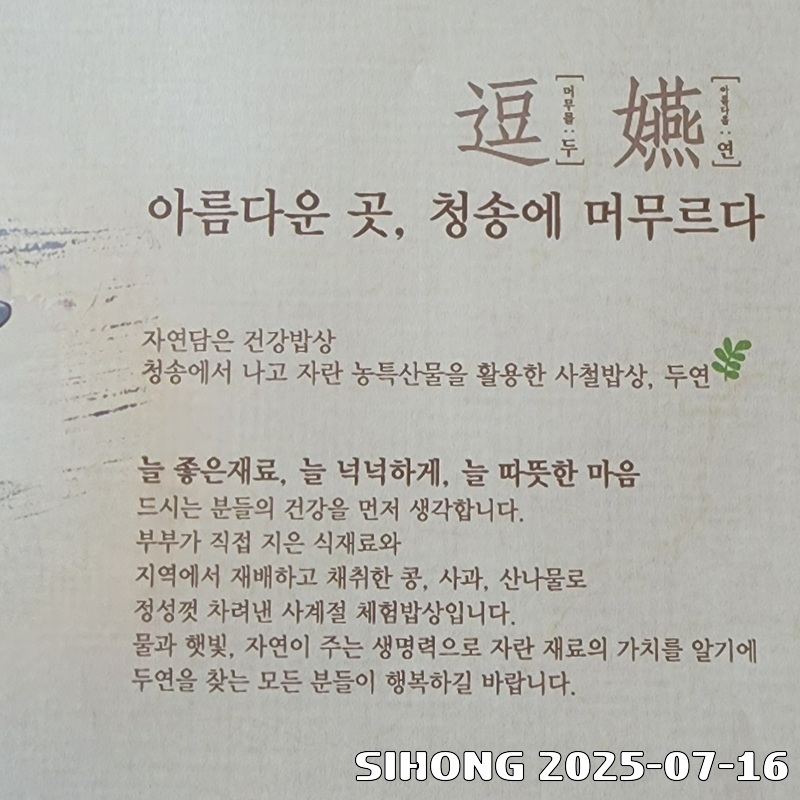 逗 [머무를 : 두] 嬿 [아름다울 : 연]
아름다운 곳, 청송에 머무르다
자연담은 건강밥상
청송에서 나고 자란 농특산물을 활용한 사철밥상, 두연
늘 좋은재료, 늘 넉넉하게, 늘 따뜻한 마음
드시는 분들의 건강을 먼저 생각합니다.
부부가 직접 지은 식재료와
지역에서 재배하고 채취한 콩, 사과, 산나물로
정성껏 차려낸 사계절 체험밥상입니다.
물과 햇빛, 자연이 주는 생명력으로 자란 재료의 가치를 알기에
두연을 찾는 모든 분들이 행복하길 바랍니다.
SIHONG 2025-07-16